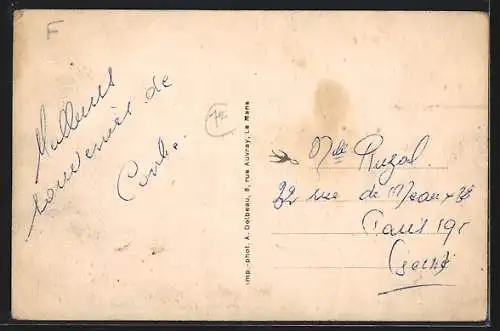 F
Meilleurs
souvenirs de
72
Imp.-phot. A. Dolbeau, 8, rue Auvray, Le Mans
Mlle Ruzal
32 rue de Meaux
Paris 19e